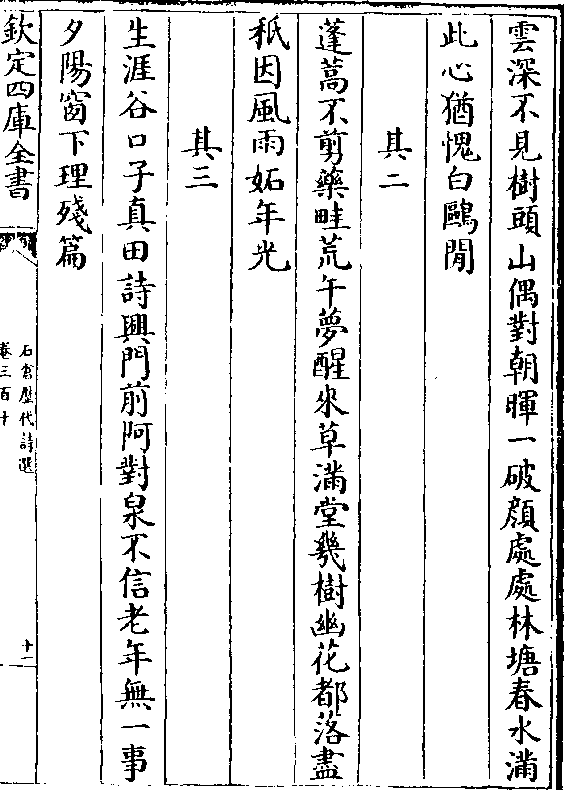 雲深不見樹頭山偶對朝暉一破顔處處林塘春水滿
此心猶愧白鷗閒
其二
蓬蒿不剪藥畦荒午夢醒來草滿堂幾樹幽花都落盡
秪因風雨妬年光
其三
生涯谷口子真田詩興門前阿對泉不信老年無一事
夕陽窗下理殘篇
欽定四庫全書
石倉歷代詩選
卷三百十
十一